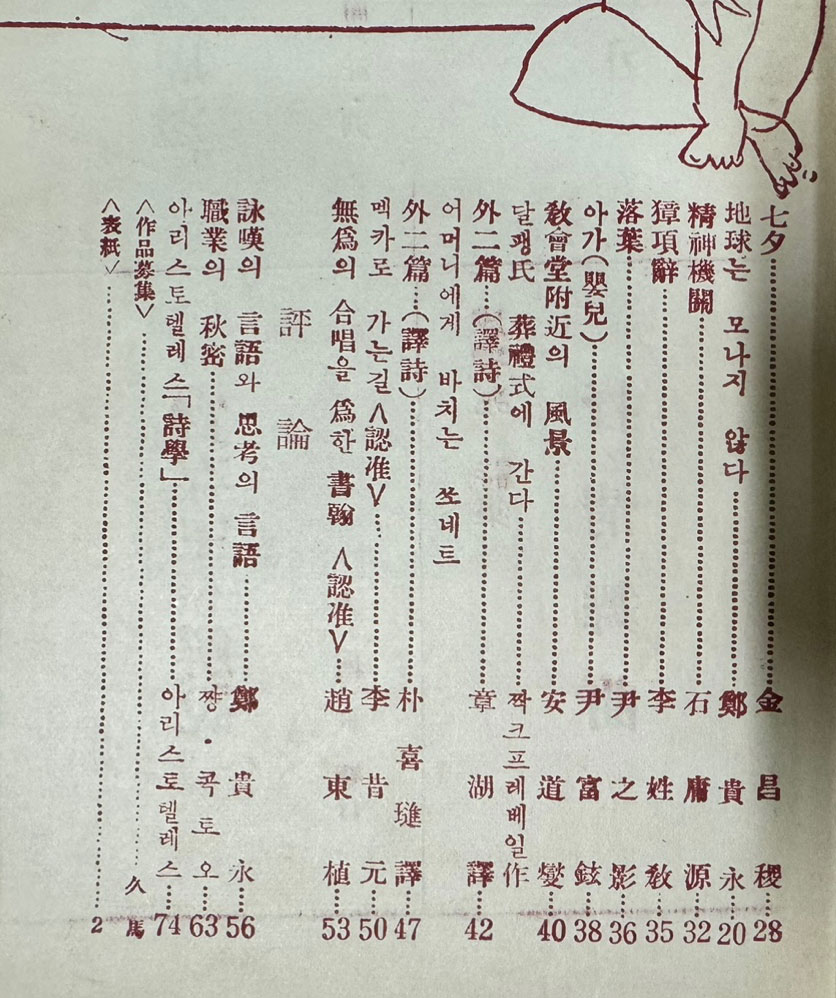 七夕 金昌稷 28
地球는 모나지 않다 鄭貴永 20
精神機關 石庸源 32
獐項辭 李姓敎 35
落葉 尹之影 36
아가(嬰兒) 尹富鉉 38
敎會堂附近의 風景 安道燮 40
달팽氏 葬禮式에 간다 짝크프레베일作
外二篇…(譯詩) 章湖譯 42
어머니에게 바치는 쏘네트
外二篇…(譯詩) 朴喜璡譯 47
멕카로 가는길 <認准> 李昔元 50
無爲의 合唱을 爲한 書翰 <認准> 趙東植 53
評論
詠嘆의 言語와 思考의 言語 鄭貴永 56
職業의 秋密 쨩·콕토오 63
아리스토텔레스「詩學」 아리스토텔레스 74
<作品募集> 2
<表紙> 久馬